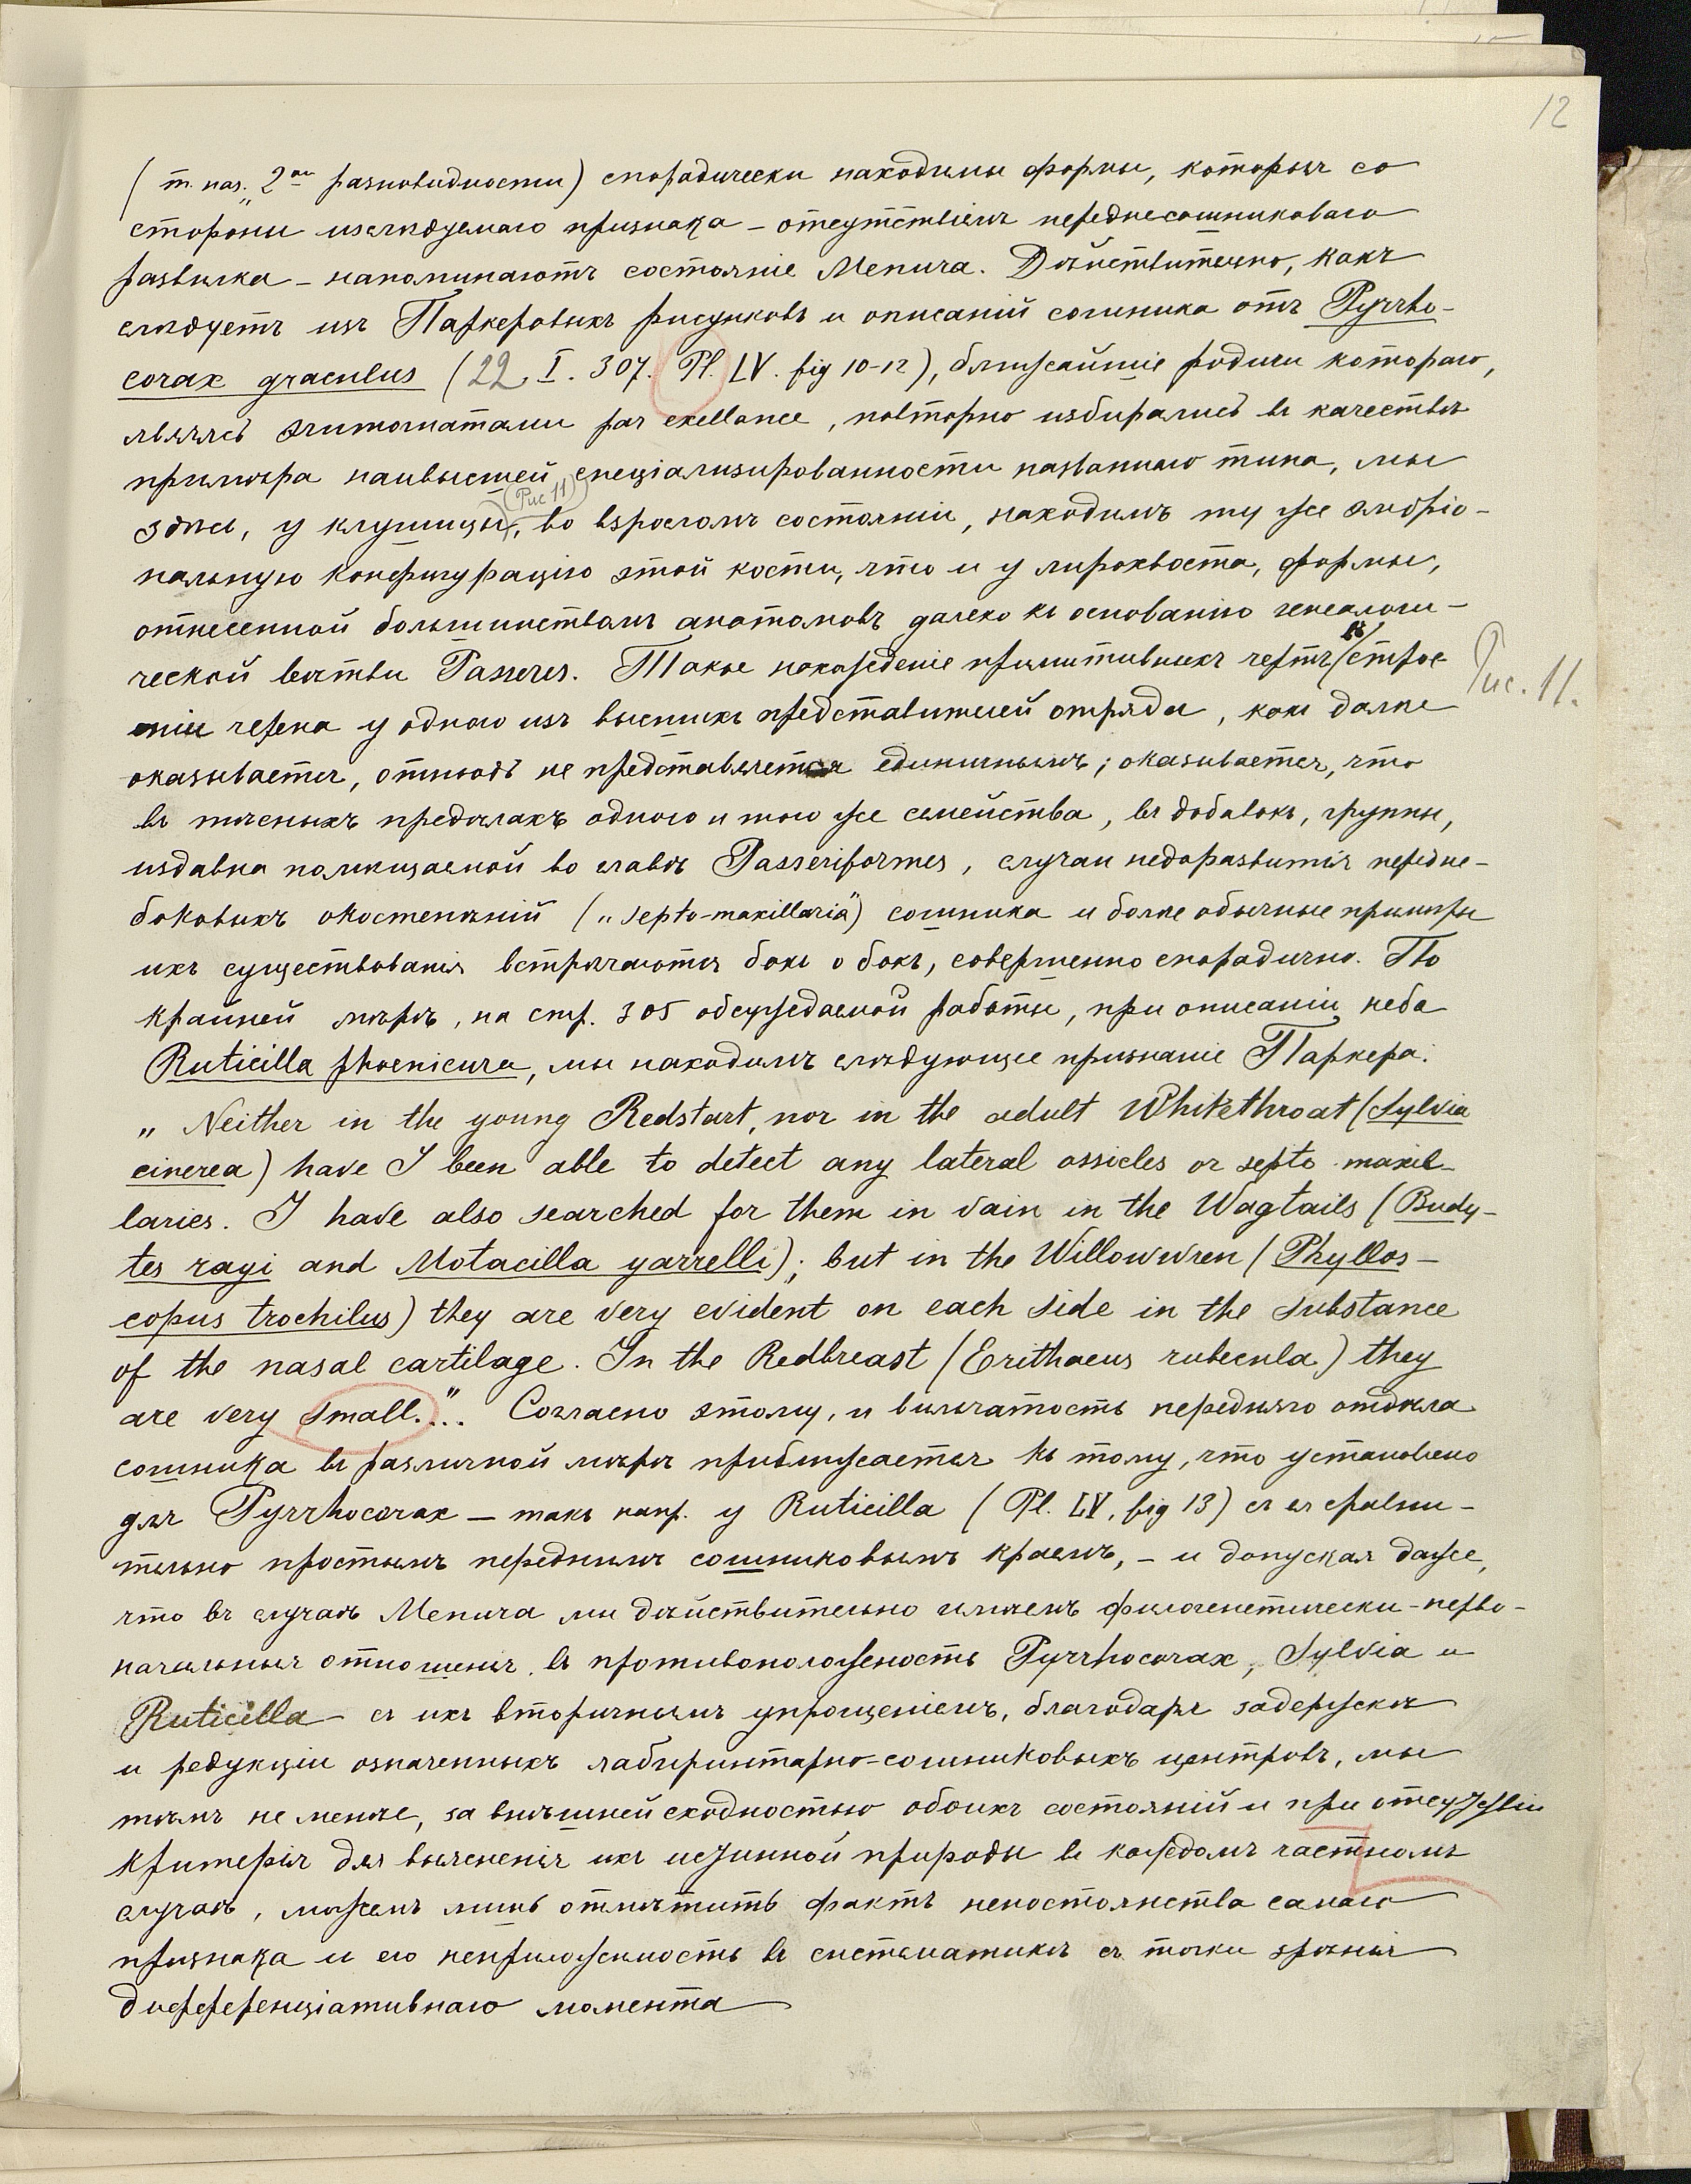 12
(т. наз. „2ой разновидности) спорадически находимы формы, которыя со
стороны изслѣдуемаго признака – отсутствіемъ переднесошниковаго
развилка – напоминаютъ состояніе Менura. Дѣйствительно, какъ
слѣдуетъ изъ Паркеровыхъ рисунковъ и описаній сошника отъ Pyrrho-
corax graculus (22, I. 307. Pl. LV. fig 10-12), ближайшіе родичи котораго,
являясь эгитогнатами par exellance, повторно избирались въ качествѣ
примѣра наивысшей спеціализированности названнаго типа, мы
(Рис 11)
здѣсь, у клушицы, во взросломъ состояніи, находимъ ту же эмбріо-
нальную конфигурацію этой кости, что и у лирохвоста, формы,
отнесенной большинствомъ анатомовъ далеко къ основанію генеалоги-
ческой вѣтви Passeres. Такое нахожденіе примитивныхъ чертъ въ строе-
Рис. 11.
ніи черепа у одного изъ высшихъ представителей отряда, какъ далѣе
оказывается, отнюдь не представляется единичнымъ; оказывается, что
въ тѣсныхъ предѣлахъ одного и того же семейства, въ добавокъ, группы,
издавна помѣщаемой во главѣ Passeriformes, случаи недоразвитія передне-
боковыхъ окостенѣній („septo-maxillaria") сошника и болѣе обычные примѣры
ихъ существованія встрѣчаются бокъ о бокъ, совершенно спорадично. По
крайней мѣрѣ, на стр. 305 обсуждаемой работы, при описаніи неба
Ruticilla phoenicura, мы находимъ слѣдующее признаніе Паркера:
„Neither in the young Redstart, nor in the adult Whitethroat (Sylvia
cinerea) have I been able to detect any lateral ossicles or septo-maxil-
laries. I have also searched for them in vain in the Wagtails (Budy-
tes rayi and Motacilla yarrelli); but in the Willowwren (Phyllos-
copus trochilus) they are very evident on each side in the substance
of the nasal cartilage. In the Redbreast (Erithacus rubecula) they
are very small."... Согласно этому, и вильчатость передняго отдѣла
сошника въ различной мѣрѣ приближается къ тому, что установлено
для Pyrrhocorax – такъ напр. у Ruticilla (Pl. LV, fig 13) съ ея сравни-
тельно простымъ переднимъ сошниковымъ краемъ, – и допуская даже,
что въ случаѣ Менura мы дѣйствительно имѣемъ филогенетически-перво-
начальныя отношенія, въ противоположность Pyrrhocorax, Sylvia и
Ruticilla – съ ихъ вторичнымъ упрощеніемъ, благодаря задержкѣ
и редукціи означенныхъ лабиринтарно-сошниковыхъ центровъ, мы
тѣмъ не менѣе, за внѣшней сходностью обоихъ состояній и при отсутствіи
критерія для выясненія ихъ истинной природы въ каждомъ частномъ
случаѣ, можемъ лишь отмѣтить фактъ непостоянства самаго
признака и его неприложимость въ систематикѣ съ точки зрѣнія
дифференціативнаго момента